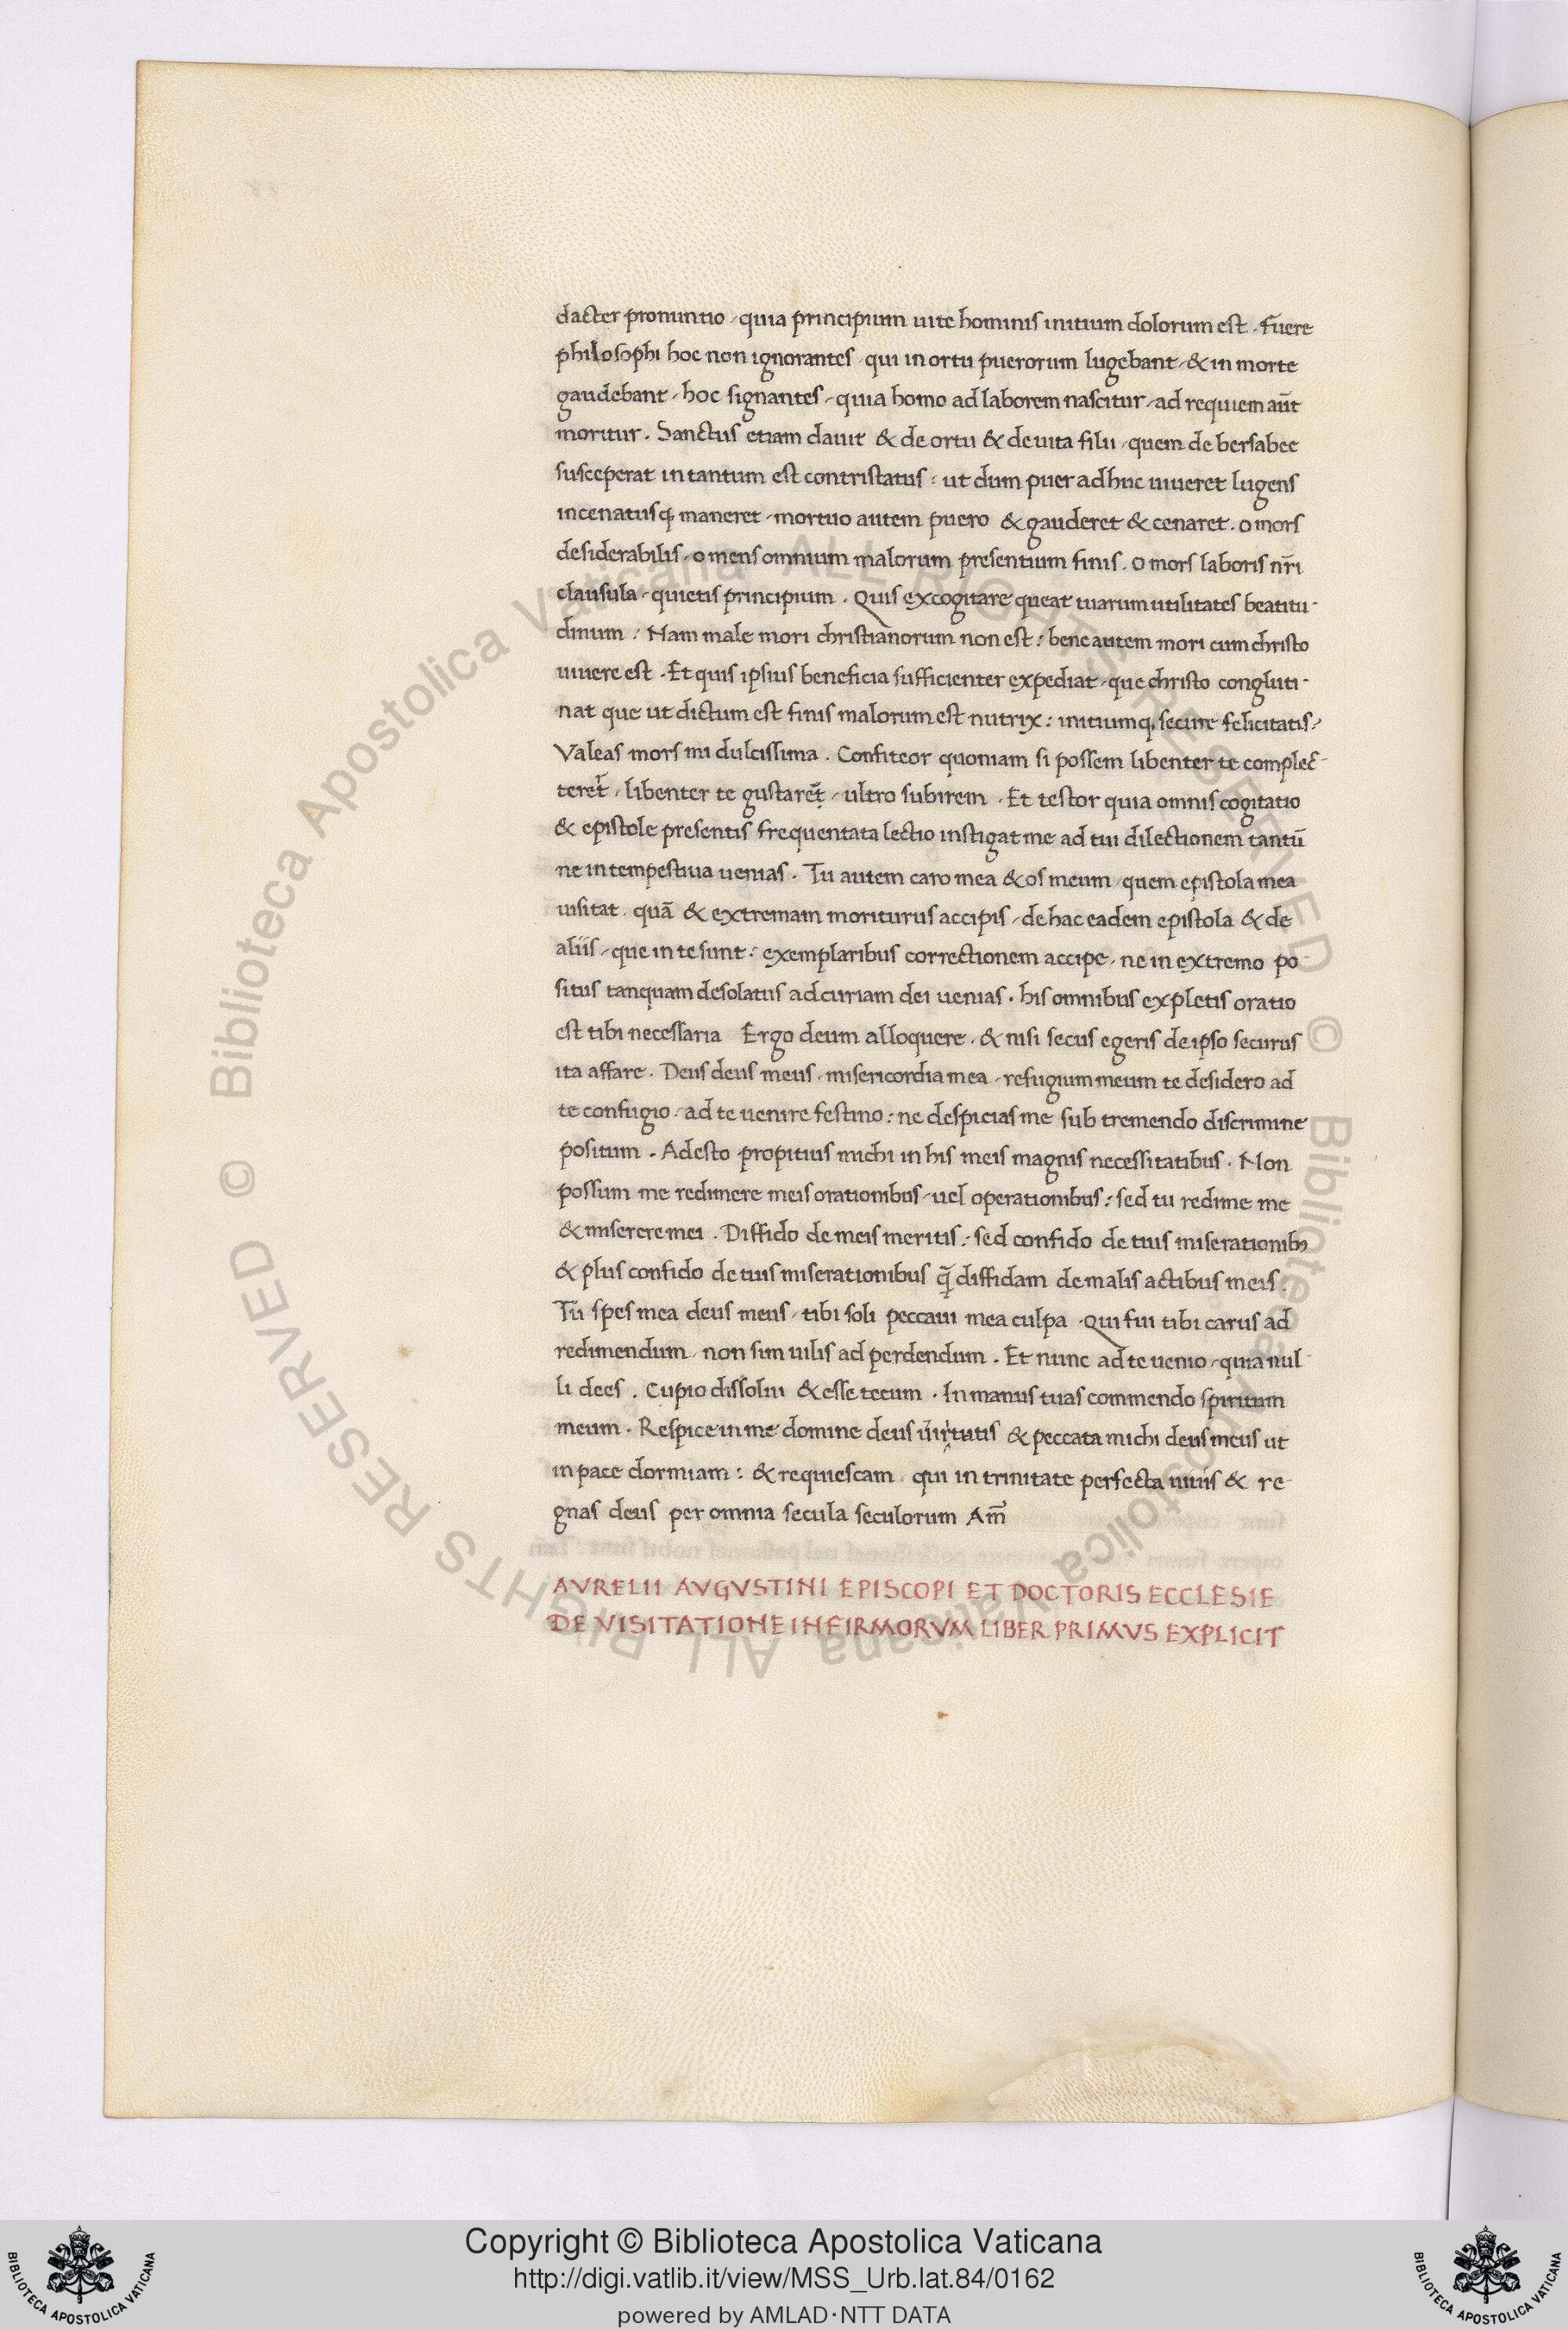 dacter pronuntio, quia principium uite hominis initium dolorum est. fuere
philosophi hoc non ignorantes, qui in ortu puerorum lugebant, & in morte
gaudebant, hoc signantes, quia homo ad laborem nascitur, ad requiem aūt
moritur. Sanctus etiam dauit & de ortu & de uita filii, quem de bersabee
susceperat in tantum est contristatus: ut dum puer adhuc uiueret lugens
incenatusq; maneret, mortuo autem puero & gauderet & cenaret. o mors
desiderabilis, o mens omnium malorum presentium finis. o mors laboris nr̄i
clausula, quietis principium. Quis excogitare queat tuarum utilitates beatitu-
dinum: Nam male mori christianorum non est: bene autem mori cum christo
uiuere est. Et quis ipsius beneficia sufficienter expediat, que christo congluti-
nat que ut dictum est finis malorum est nutrix: initiumq; secure felicitatis,
Valeas mors mi dulcissima. Confiteor quoniam si possem libenter te complec-
teret̄, libenter te gustaret̄, ultro subirem. Et testor quia omnis cogitatio
& epistole presentis frequentata lectio instigat me ad tui dilectionem tantū
ne intempestiua uenias. Tu autem caro mea & os meum, quem epistola mea
uisitat, quā & extremam moriturus accipis, de hac eadem epistola & de
aliis, que in te sunt: exemplaribus correctionem accipe, ne in extremo po-
situs tanquam desolatus ad curiam dei uenias. his omnibus expletis oratio
est tibi necessaria Ergo deum alloquere, & nisi secus egeris de ipso securus
ita affare. Deus deus meus, misericordia mea, refugium meum te desidero ad
te confugio, ad te uenire festino: ne despicias me sub tremendo discrimine
positum. Adesto propitius michi in his meis magnis necessitatibus. Non
possum me redimere meis orationibus, uel operationibus: sed tu redime me
& miserere mei. Diffido de meis meritis: sed confido de tuis miserationib;
& plus confido de tuis miserationibus q̄ diffidam de malis actibus meis.
Tu spes mea deus meus, tibi soli peccaui mea culpa. Qui fui tibi carus ad
redimendum, non sim uilis ad perdendum. Et nunc ad te uenio, quia nul-
li dees. Cupio dissolui & esse tecum. In manus tuas commendo spiritum
meum. Respice in me domine deus uirtutis & peccata michi deus meus ut
in pace dormiam: & requiescam, qui in trinitate perfecta uiuis & re-
gnas deus per omnia secula seculorum Am̄
AVRELII AVGVSTINI EPISCOPI ET DOCTORIS ECCLESIE
DE VISITATIONE INFIRMORVM LIBER PRIMVS EXPLICIT
© Biblioteca Apostolica Vaticana ALL RIGHTS RESERVED
© Biblioteca Apostolica Vaticana ALL RIGHTS RESERVED
Copyright © Biblioteca Apostolica Vaticana
http://digi.vatlib.it/view/MSS_Urb.lat.84/0162
powered by AMLAD·NTT DATA
BIBLIOTECA APOSTOLICA VATICANA
BIBLIOTECA APOSTOLICA VATICANA